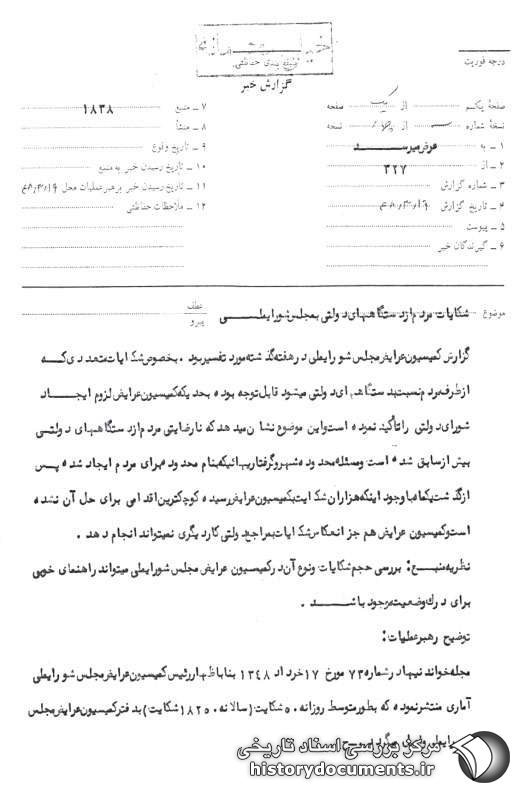 طبقه بندی حفاظتی
گزارش خبر
درجه فوریت
صفحهٔ یکم از یک صفحه
نسخهٔ شماره از نسخه
۱ ـ به عرض میرسد
۲ ـ از ۳۲۷
۳ ـ شماره گزارش
۴ ـ تاریخ گزارش ۴۸٫۳٫۱۹
۵ ـ پیوست
۶ ـ گیرندگان خبر
۷ ـ منبع ۱۸۳۸
۸ ـ منشأ
۹ ـ تاریخ وقوع
۱۰ ـ تاریخ رسیدن خبر به منبع
۱۱ ـ تاریخ رسیدن خبر برهبر عملیات محل ۴۸٫۳٫۱۹
۱۲ ـ ملاحظات حفاظتی
موضوع شکایات مردم از دستگاههای دولتی بمجلس شورایملی
عطف
پیرو
گزارش کمیسیون عرایض مجلس شورایملی در هفته گذشته مورد تفسیر بود . بخصوص شکایات متعددی که
از طرف مردم نسبت بدستگاههای دولتی میشود قابل توجه بوده بحدیکه کمیسیون عرایض لزوم ایجاد
شورای دولتی را تأکید نموده است و این موضوع نشان میدهد که نارضایتی مردم از دستگاههای دولتی
بیش از سابق شده است و مسئله محدوده شهر و گرفتاریهائیکه بنام محدوده برای مردم ایجاد شده پس
از گذشت یکماه با وجود اینکه هزاران شکایت بکمیسیون عرایض رسیده کوچکترین اقدامی برای حل آن نشده
است و کمیسیون عرایض هم جز انعکاس شکایات بمراجع دولتی کار دیگری نمیتواند انجام دهد .
نظریه منبع : بررسی حجم شکایات و نوع آن در کمیسیون عرایض مجلس شورایملی میتواند راهنمای خوبی
برای درک وضعیت موجود باشد .
توضیح رهبر عملیات :
مجله خواندنیها در شماره ۷۳ مورخ ۱۷ خرداد ۱۳۴۸ بنا باظهار رئیس کمیسیون عرایض مجلس شورایملی
آماری منتشر نموده که بطور متوسط روزانه ۵۰ شکایت ( سالانه ۱۸۲۵۰ شکایت ) بدفتر کمیسیون عرایض مجلس
شورایملی
مرکز بررسی اسناد تاریخی
historydocuments.ir